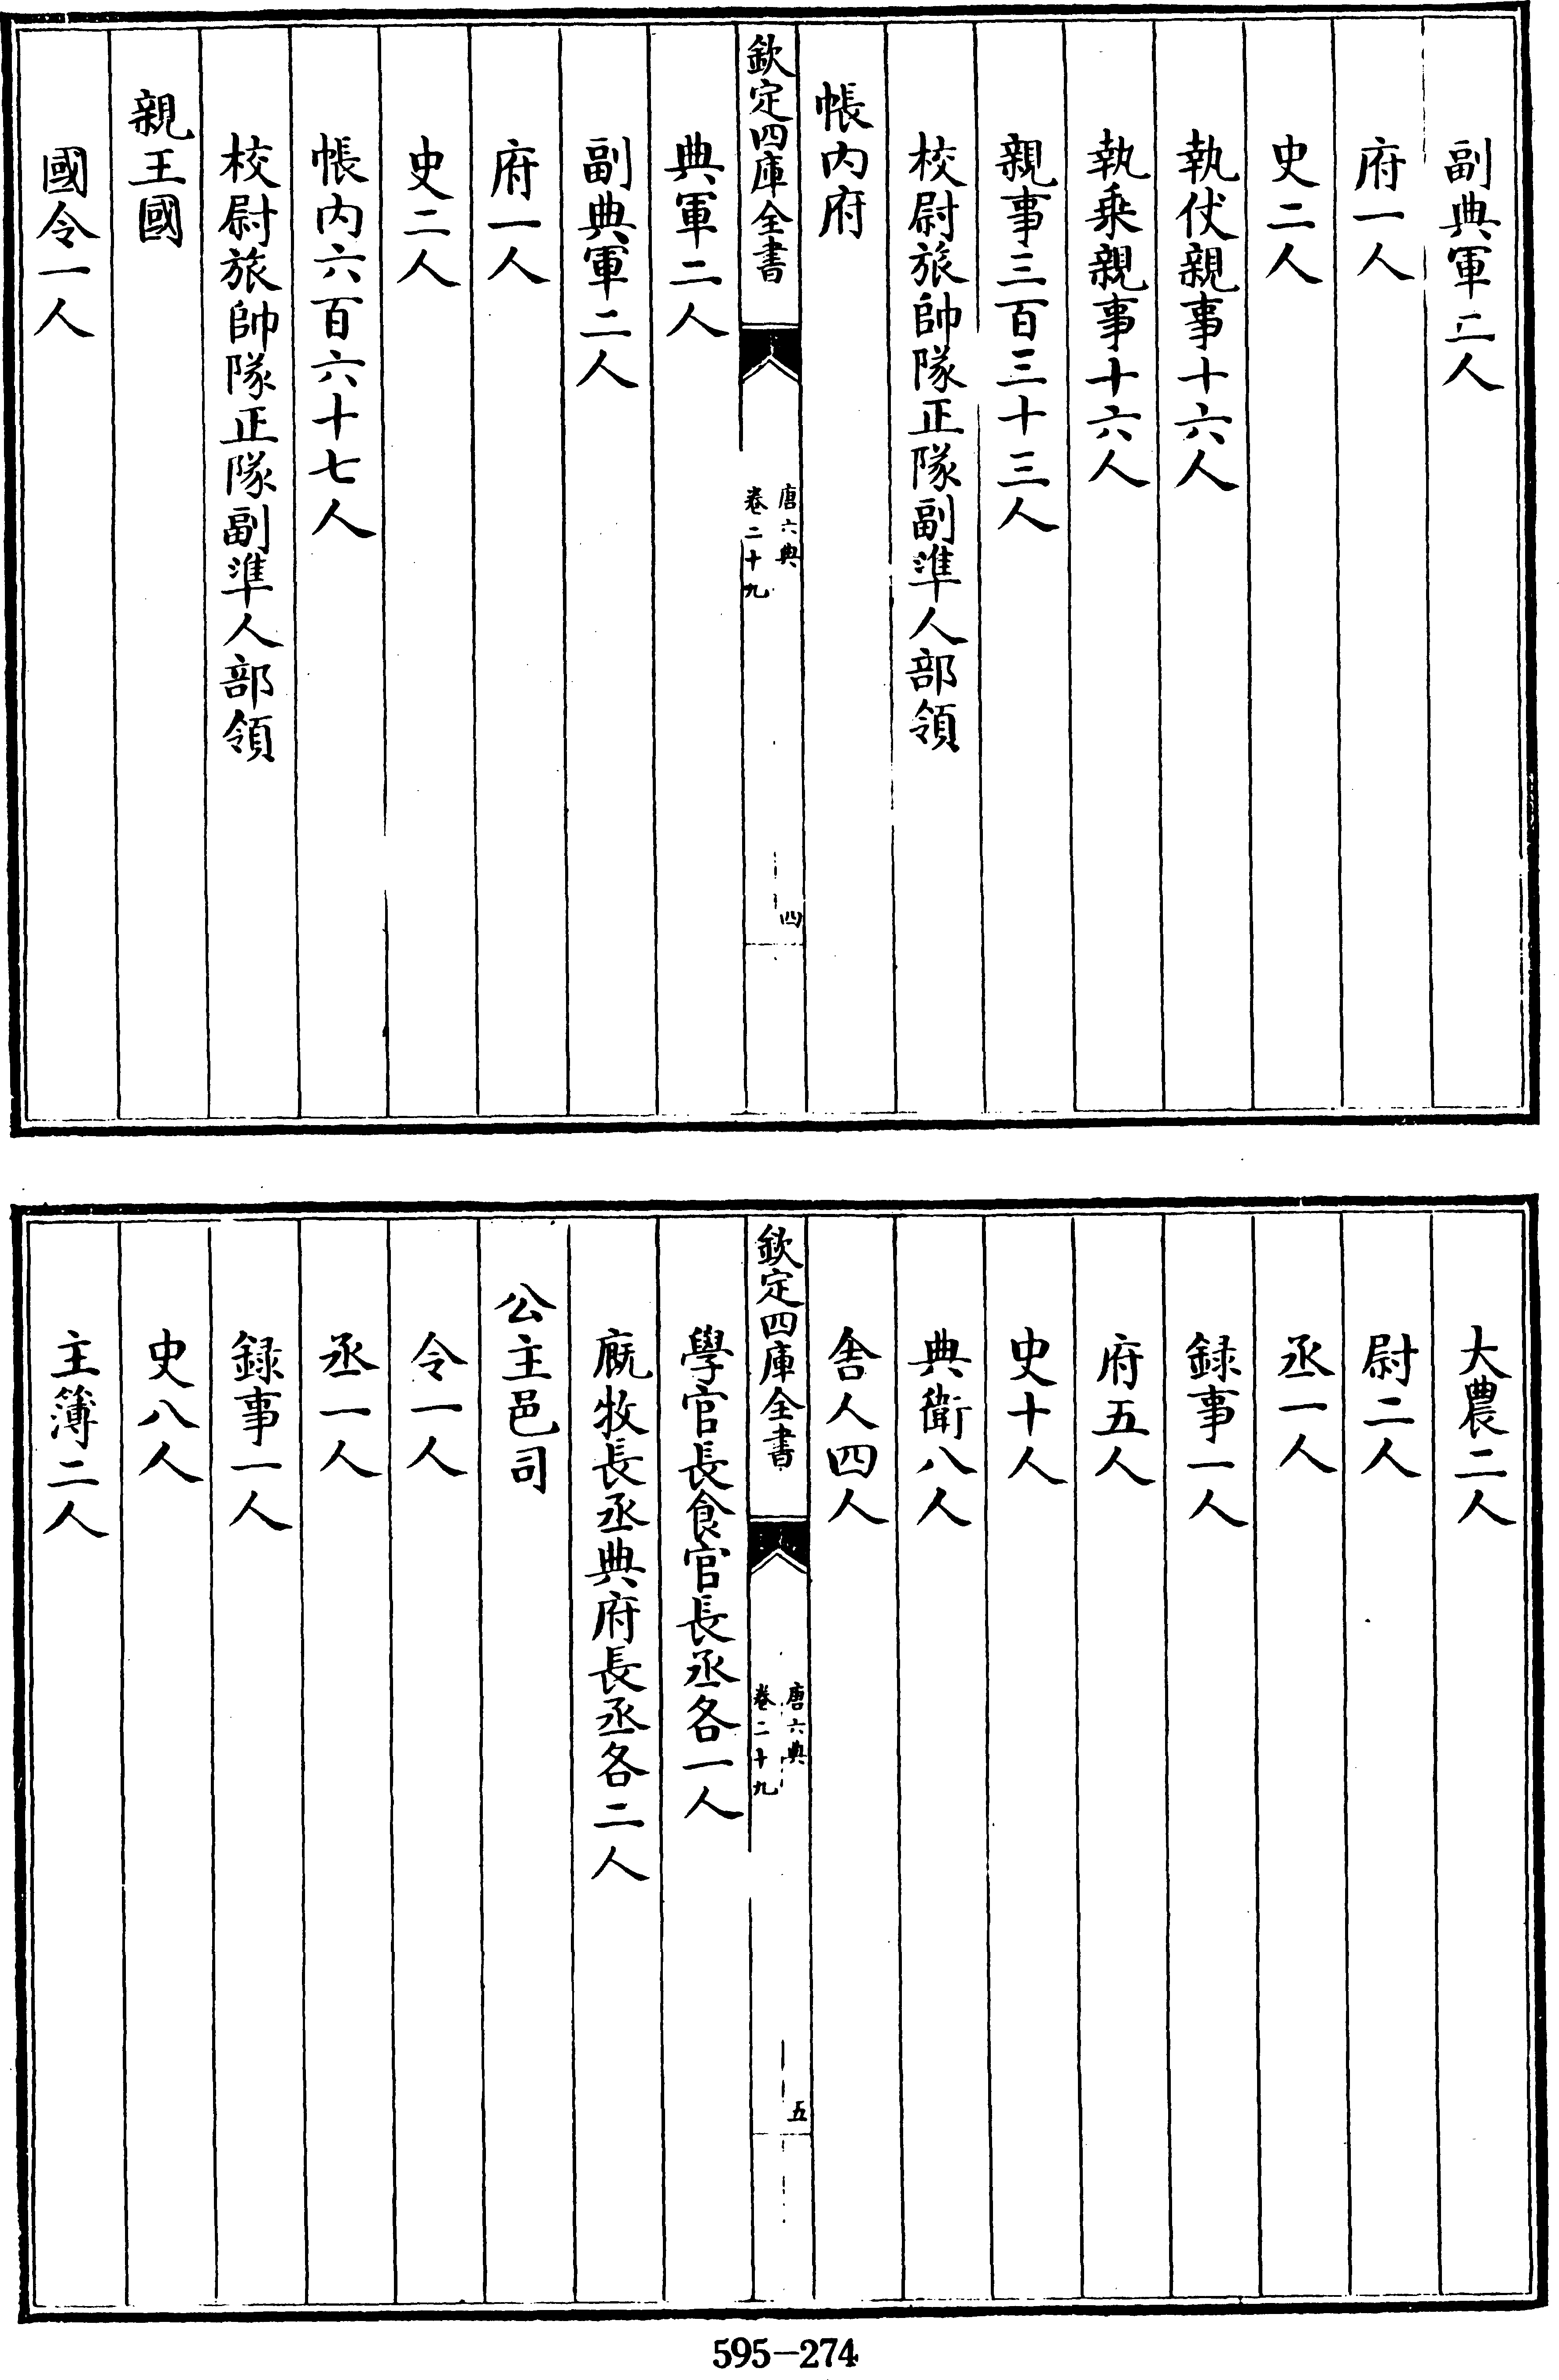 副典軍二人
府一人
史二人
執仗親事十六人
執乗親事十六人
親事三百三十三人
校尉旅帥隊正隊副準人部領
帳内府
欽定四庫全書
唐六典
卷二十九
四
典軍二人
副典軍二人
府一人
史二人
帳内六百六十七人
校尉旅帥隊正隊副準人部領
親王國
國令一人
大農二人
尉二人
丞一人
録事一人
府五人
史十人
典衛八人
舎人四人
欽定四庫全書
唐六典
卷二十九
五
學官長食官長丞各一人
廐牧長丞典府長丞各二人
公主邑司
令一人
丞一人
録事一人
史八人
主簿二人
595-274